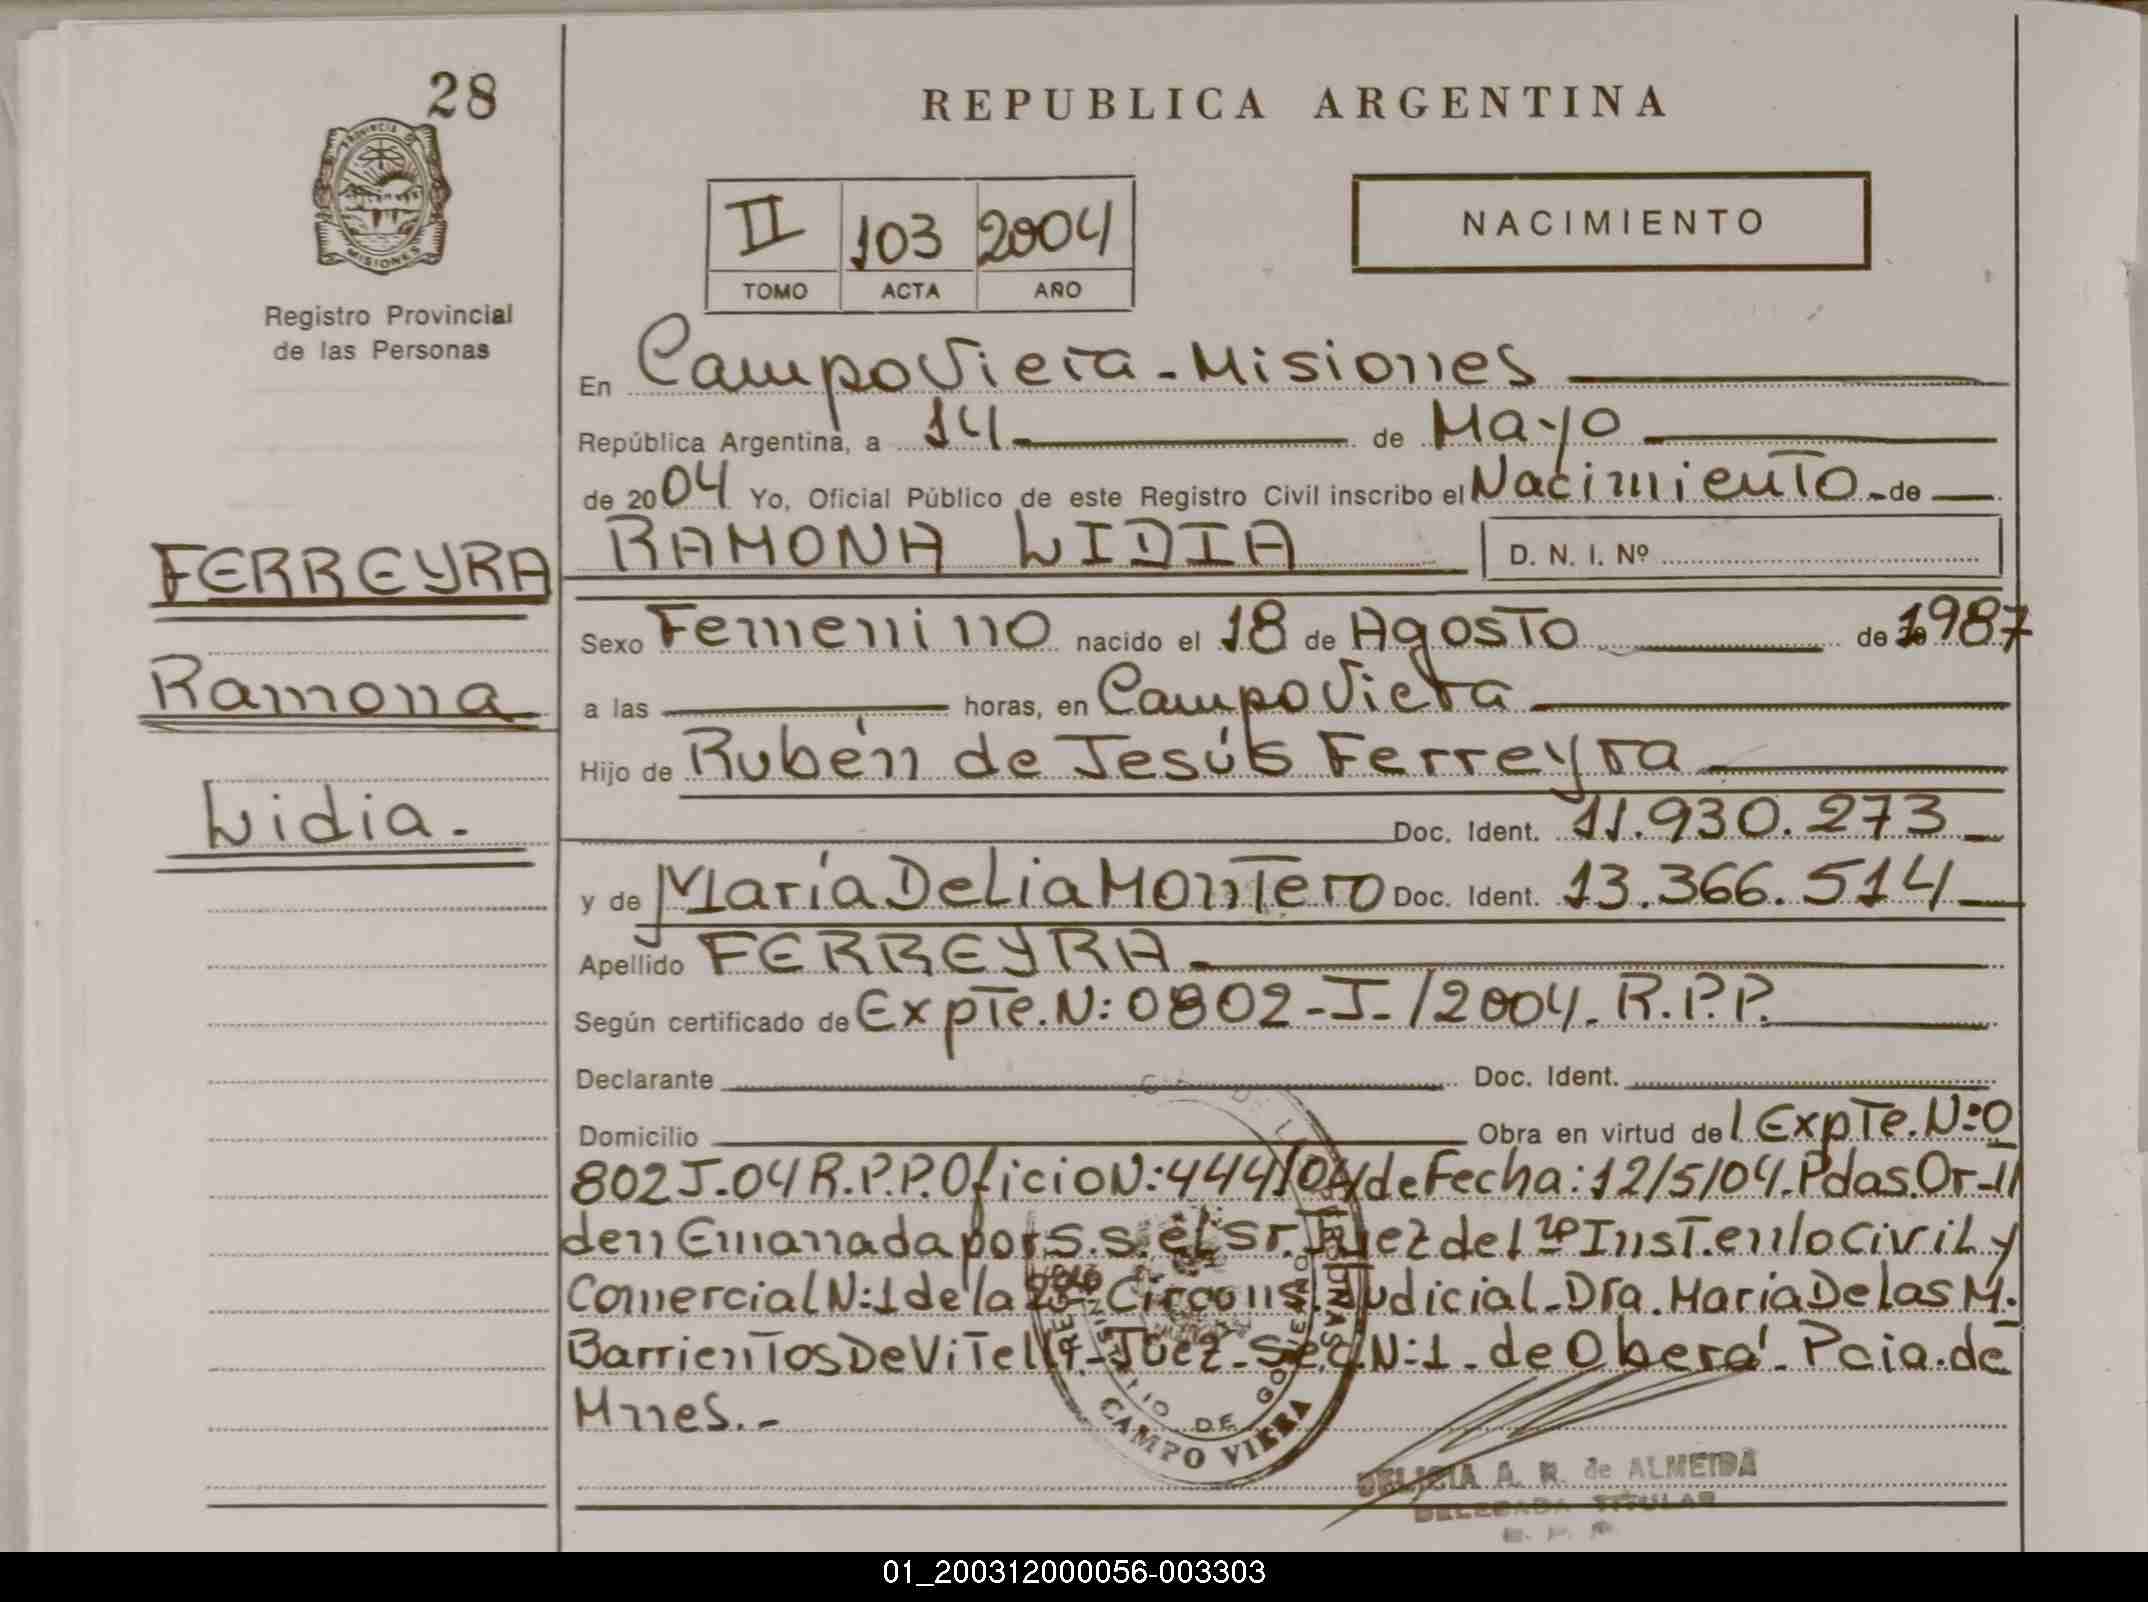 28
REPUBLICA ARGENTINA
PROVINCIA DE
MISIONES
Registro Provincial
de las Personas
II 103 2004
TOMO ACTA AÑO
NACIMIENTO
En Campo Viera - Misiones
República Argentina, a 14 de Mayo
de 2004 Yo, Oficial Público de este Registro Civil inscribo el Nacimiento - de
FERREYRA
Ramona
Lidia.-
RAMONA LIDIA D. N. I. Nº
Sexo Femenino nacido el 18 de Agosto de 1987
a las horas, en Campo Viera
Hijo de Rubén de Jesús Ferreyra
Doc. Ident. 11.930.273
y de María Delia Montero Doc. Ident. 13.366.514
Apellido FERREYRA
Según certificado de Expte. N: 0802-J-/2004. R.P.P.
Declarante Doc. Ident.
Domicilio Obra en virtud del Expte. N:0
802 J-04 R.P.P. Oficio N:444/04 de Fecha: 12/5/04. Pdas. Or-//
den Emanada por S.S. el Sr. Juez del 1ro Inst. en lo Civil y
Comercial N:1 de la 2da Circuns. Judicial - Dra. María De las M.
Barrientos De Vitelli - Juez - Sec. N:1 - de Oberá - Pcia. de
Mnes.-
MINISTERIO DE GOBIERNO
CAMPO VIERA
DELICIA A. R. de ALMEIDA
DELEGADA TITULAR
R. P. P.
01_200312000056-003303